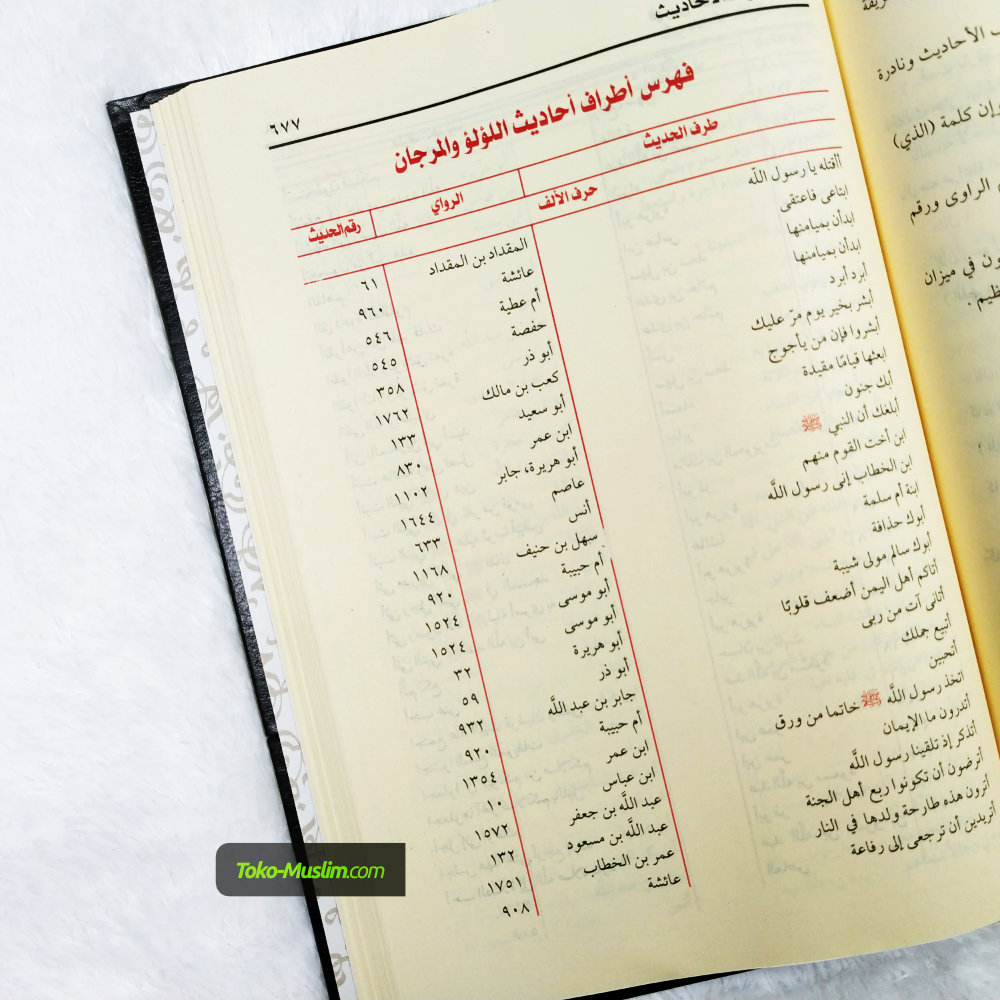 الأحاديث
٦٧٧
فهرس أطراف أحاديث اللؤلؤ والمرجان
طرف الحديث الرواي رقم الحديث
حرف الألف
أأقتله يا رسول اللَّه المقداد بن المقداد ٦١
ابتاعى فاعتقى عائشة ٩٦٠
ابدأن بميامنها أم عطية ٥٤٦
ابدأن بميامنها حفصة ٥٤٥
أبرد أبرد أبو ذر ٣٥٨
أبشر بخير يوم مرّ عليك كعب بن مالك ١٧٦٢
أبشروا فإن من يأجوج أبو سعيد ١٣٣
ابعثها قيامًا مقيدة ابن عمر ٨٣٠
أبك جنون أبو هريرة، جابر ١١٠٢
أبلغك أن النبي ﷺ عاصم ١٦٤٤
ابن أخت القوم منهم أنس ٦٣٣
ابن الخطاب إنى رسول اللَّه سهل بن حنيف ١١٦٨
ابنة أم سلمة أم حبيبة ٩٢٠
أبوك حذافة أبو موسى ١٥٢٤
أبوك سالم مولى شيبة أبو موسى ١٥٢٤
أتاكم أهل اليمن أضعف قلوبًا أبو هريرة ٣٢
أتانى آت من ربى أبو ذر ٥٩
أتبيع جملك جابر بن عبد اللَّه ٩٣٢
أتحبين أم حبيبة ٩٢٠
اتخذ رسول اللَّه ﷺ خاتما من ورق ابن عمر ١٣٥٤
أتدرون ما الإيمان ابن عباس ١٠
أتذكر إذ تلقينا رسول اللَّه عبد اللَّه بن جعفر ١٥٧٢
أترضون أن تكونوا ربع أهل الجنة عبد اللَّه بن مسعود ١٣٢
أترون هذه طارحة ولدها في النار عمر بن الخطاب ١٧٥١
أتريدين أن ترجعى إلى رفاعة عائشة ٩٠٨
الأحاديث ونادرة
إن كلمة (الذي)
الراوى ورقم
في ميزان
Toko-Muslim.com